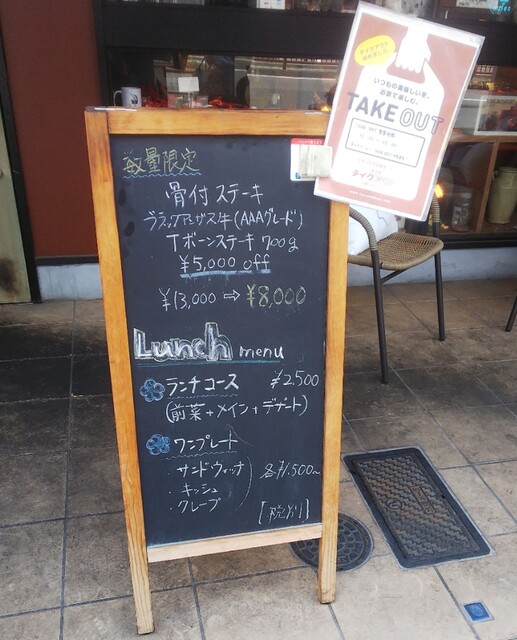 数量限定
骨付ステーキ
ブラックアンガス牛(AAAグレード)
Tボーンステーキ 700g
¥5,000 off
¥13,000 ⇨ ¥8,000
Lunch menu
ランチコース ¥2,500
(前菜+メイン+デザート)
ワンプレート
・サンドウィッチ
・キッシュ
・クレープ
各¥1,500〜
[税別]
テイクアウト
始めました。
いつもの美味しいを、
お家で楽しむ。
TAKE OUT